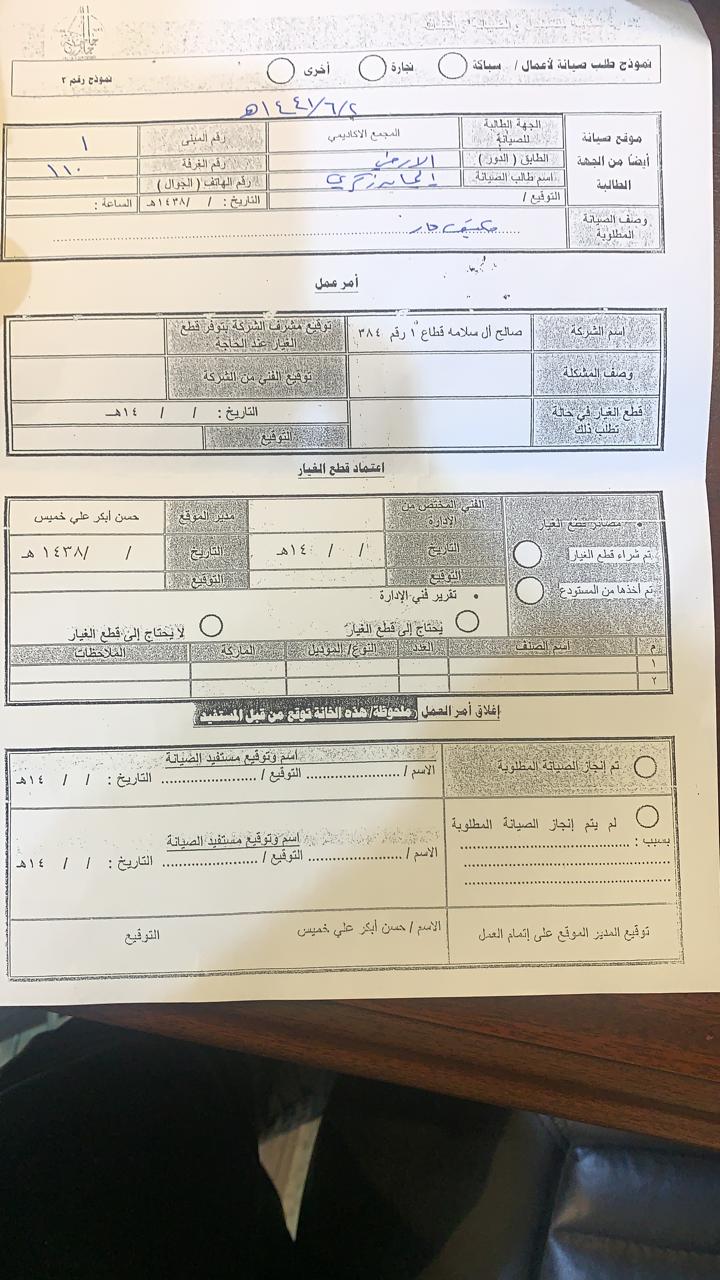 نموذج طلب صيانة لأعمال / سباكة نجارة أخرى
نموذج رقم ٢
١٤٤١/٦/٢هـ
موقع صيانة أيضاً من الجهة الطالبة
الجهة الطالبة للصيانة المجمع الاكاديمي رقم المبنى ١
الطابق ( الدور ) الارضي رقم الغرفة ١١٠
اسم طالب الصيانة رقم الهاتف ( الجوال )
التوقيع / التاريخ : / /١٤٣٨هـ الساعة :
وصف الصيانة المطلوبة مكيف حار
أمر عمل
اسم الشركة صالح أل سلامه قطاع ١ رقم ٣٨٤ توقيع مشرف الشركة بتوفر قطع الغيار عند الحاجة
وصف المشكلة توقيع الفني من الشركة
قطع الغيار في حالة تطلب ذلك التاريخ : / / ١٤هـ
التوقيع
اعتماد قطع الغيار
• مصادر قطع الغيار الفني المختص من الإدارة مدير الموقع حسن أبكر علي خميس
تم شراء قطع الغيار التاريخ / / ١٤هـ التاريخ / /١٤٣٨ هـ
تم أخذها من المستودع التوقيع التوقيع
• تقرير فني الإدارة
يحتاج إلى قطع الغيار لا يحتاج إلى قطع الغيار
م اسم الصنف العدد النوع/ الموديل الماركة الملاحظات
١
٢
إغلاق أمر العمل ( ملحوظة/ هذه الخانة توقع من قبل المستفيد )
تم إنجاز الصيانة المطلوبة
اسم وتوقيع مستفيد الصيانة
الاسم / .................... التوقيع / .................... التاريخ : / / ١٤هـ
لم يتم إنجاز الصيانة المطلوبة
بسبب : ....................
اسم وتوقيع مستفيد الصيانة
الاسم / .................... التوقيع / .................... التاريخ : / / ١٤هـ
توقيع المدير الموقع على إتمام العمل الاسم / حسن أبكر علي خميس التوقيع